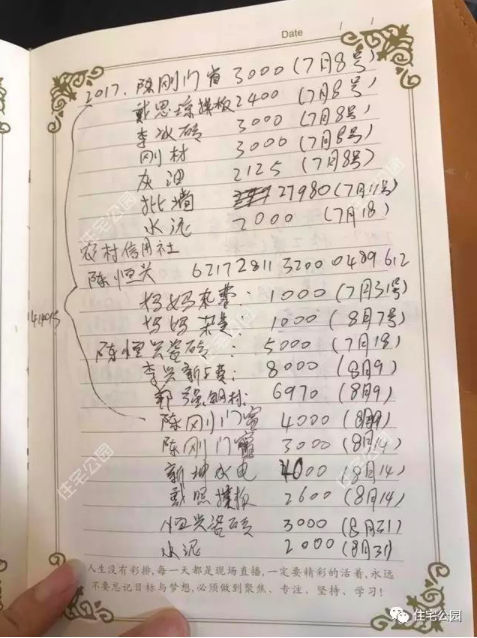 Date / /
2017. 陈刚门窗 3000 (7月8号)
戴思琼模板 2400 (7月8号)
李 砖 3000 (7月8号)
刚材 3000 (7月8号)
灰 2125 (7月8号)
批墙 27980 (7月11号)
水泥 2000 (7月18)
农村信用社
陈恒兴 62172811 3200 0489 612
妈妈杂费: 1000 (7月31号)
妈妈杂费: 1000 (8月7号)
陈恒兴瓷砖: 5000 (7月18)
李兴新 费: 8000 (8月9)
郭强钢材: 6970 (8月9)
陈刚门窗 4000 (8月9)
陈刚门窗 3000 (8月14)
新坤水电 4000 (8月14)
戴照模板 2600 (8月14)
恒兴瓷砖 3000 (8月21)
水泥 2000 (8月31)
人生没有彩排,每一天都是现场直播,一定要精彩的活着,永远
不要忘记目标与梦想,必须做到聚焦、专注、坚持、学习!
住宅公园
住宅公园
住宅公园
住宅公园